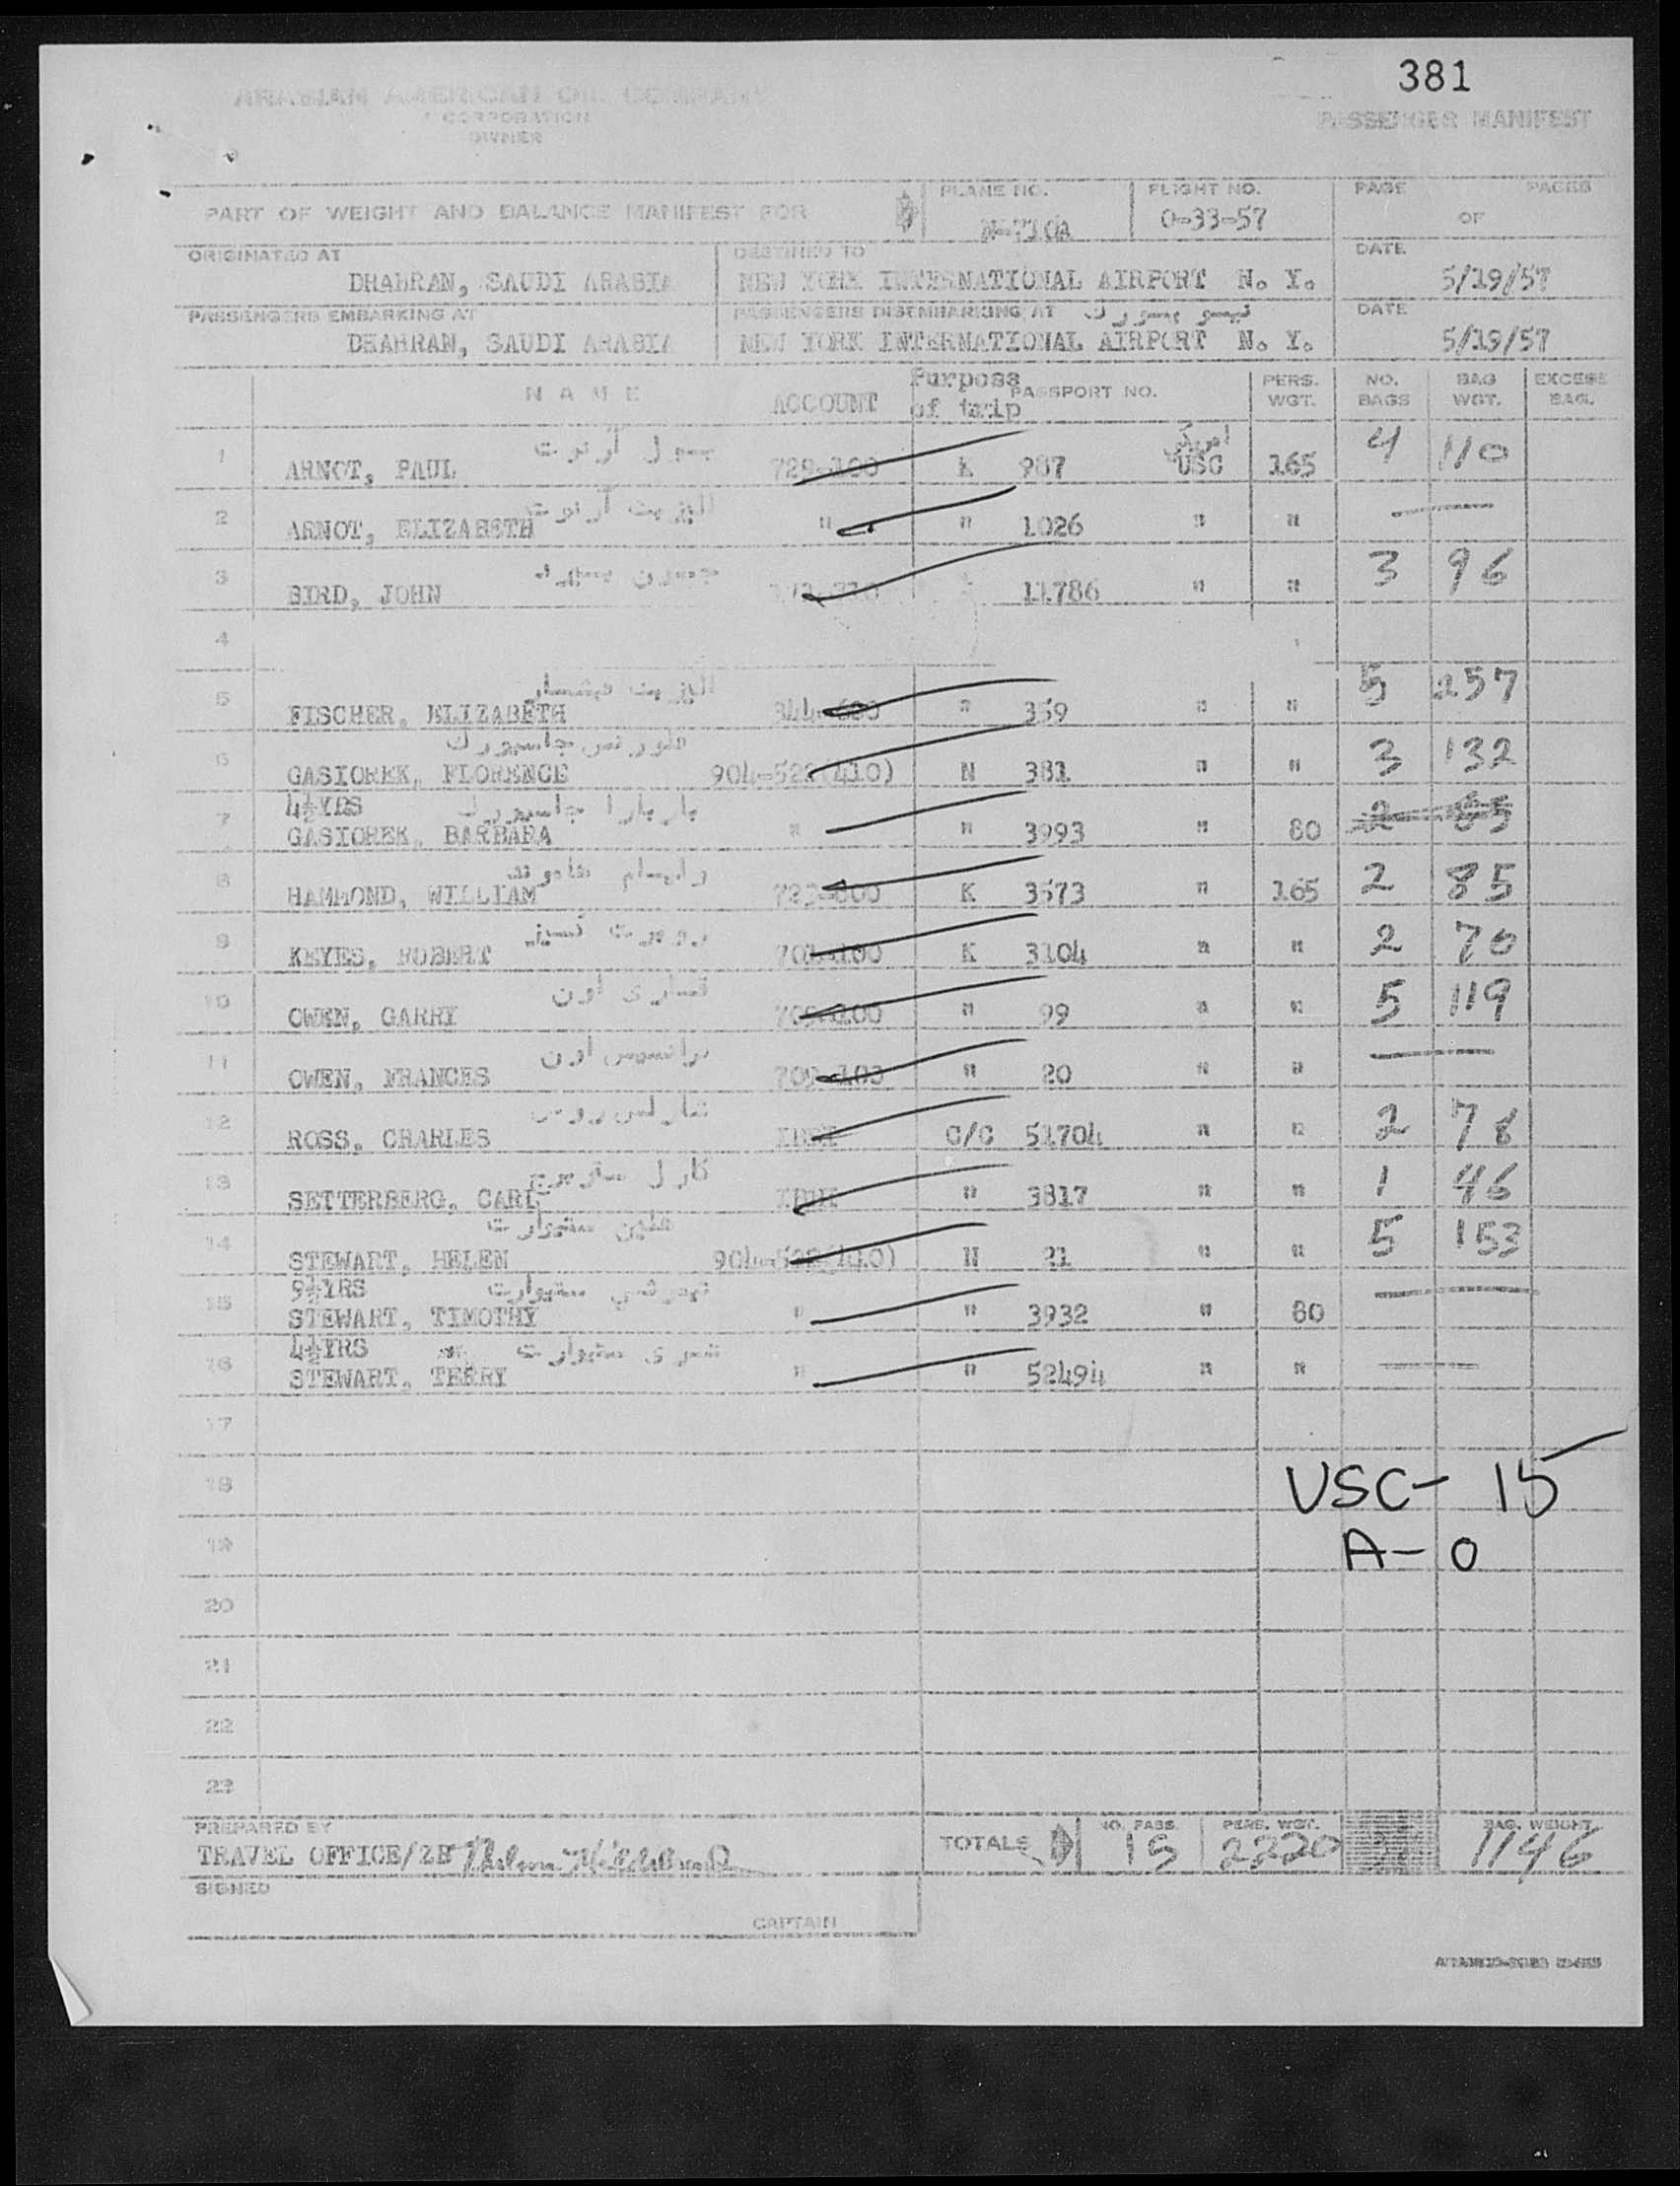 381
ARABIAN AMERICAN OIL COMPANY
A CORPORATION
OWNER
PASSENGER MANIFEST
PART OF WEIGHT AND BALANCE MANIFEST FOR PLANE NO. N-710A FLIGHT NO. 0-33-57 PAGE OF PAGES
ORIGINATED AT DHAHRAN, SAUDI ARABIA DESTINED TO NEW YORK INTERNATIONAL AIRPORT N. Y. DATE 5/19/57
PASSENGERS EMBARKING AT DHAHRAN, SAUDI ARABIA PASSENGERS DISEMBARKING AT نيو يورك NEW YORK INTERNATIONAL AIRPORT N. Y. DATE 5/19/57
NAME ACCOUNT Purpose of trip PASSPORT NO. PERS. WGT. NO. BAGS BAG WGT. EXCESS BAG.
1 ARNOT, PAUL بول آرنوت 729-100 K 987 USC 165 4 110
2 ARNOT, ELIZABETH اليزبث آرنوت " " 1026 " " —
3 BIRD, JOHN جون بيرد 11786 " " 3 96
4
5 FISCHER, ELIZABETH اليزبث فيشار " 359 " " 5 257
6 GASIOREK, FLORENCE فلورنس جاسيورك 904-522(410) N 381 " " 3 132
7 4½YRS GASIOREK, BARBARA باربارا جاسيورك " " 3993 " 80 2 85
8 HAMMOND, WILLIAM وليام هاموند K 3573 " 165 2 85
9 KEYES, ROBERT روبرت كييز 701-100 K 3104 " " 2 70
10 OWEN, GARRY قاري اون 709-100 " 99 " " 5 119
11 OWEN, FRANCES فرانسيس اون 709-100 " 20 " " —
12 ROSS, CHARLES شارلس روس C/C 51704 " " 2 78
13 SETTERBERG, CARL كارل ستربرج " 3817 " " 1 46
14 STEWART, HELEN هلين ستيوارت 904-522(410) N 21 " " 5 153
15 9½YRS STEWART, TIMOTHY تيموثي ستيوارت " " 3932 " 80 —
16 4½YRS STEWART, TERRY تيري ستيوارت " " 52494 " " —
17
18 USC- 15
19 A- 0
20
21
22
23
PREPARED BY TRAVEL OFFICE/ZB TOTALS NO. PASS. 15 PERS. WGT. 2220 BAG. WEIGHT 1146
SIGNED
CAPTAIN